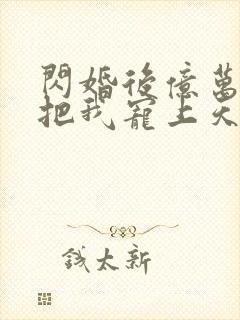 閃婚後億萬
把我寵上天
錢太新